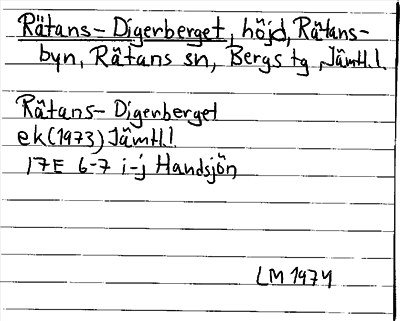 Rätans-Digerberget, höjd, Rätans-
byn, Rätans sn, Bergs tg, Jämtl.l.
Rätans-Digerberget
ek (1973) Jämtl.l.
17E 6-7 i-j Handsjön
LM 1974